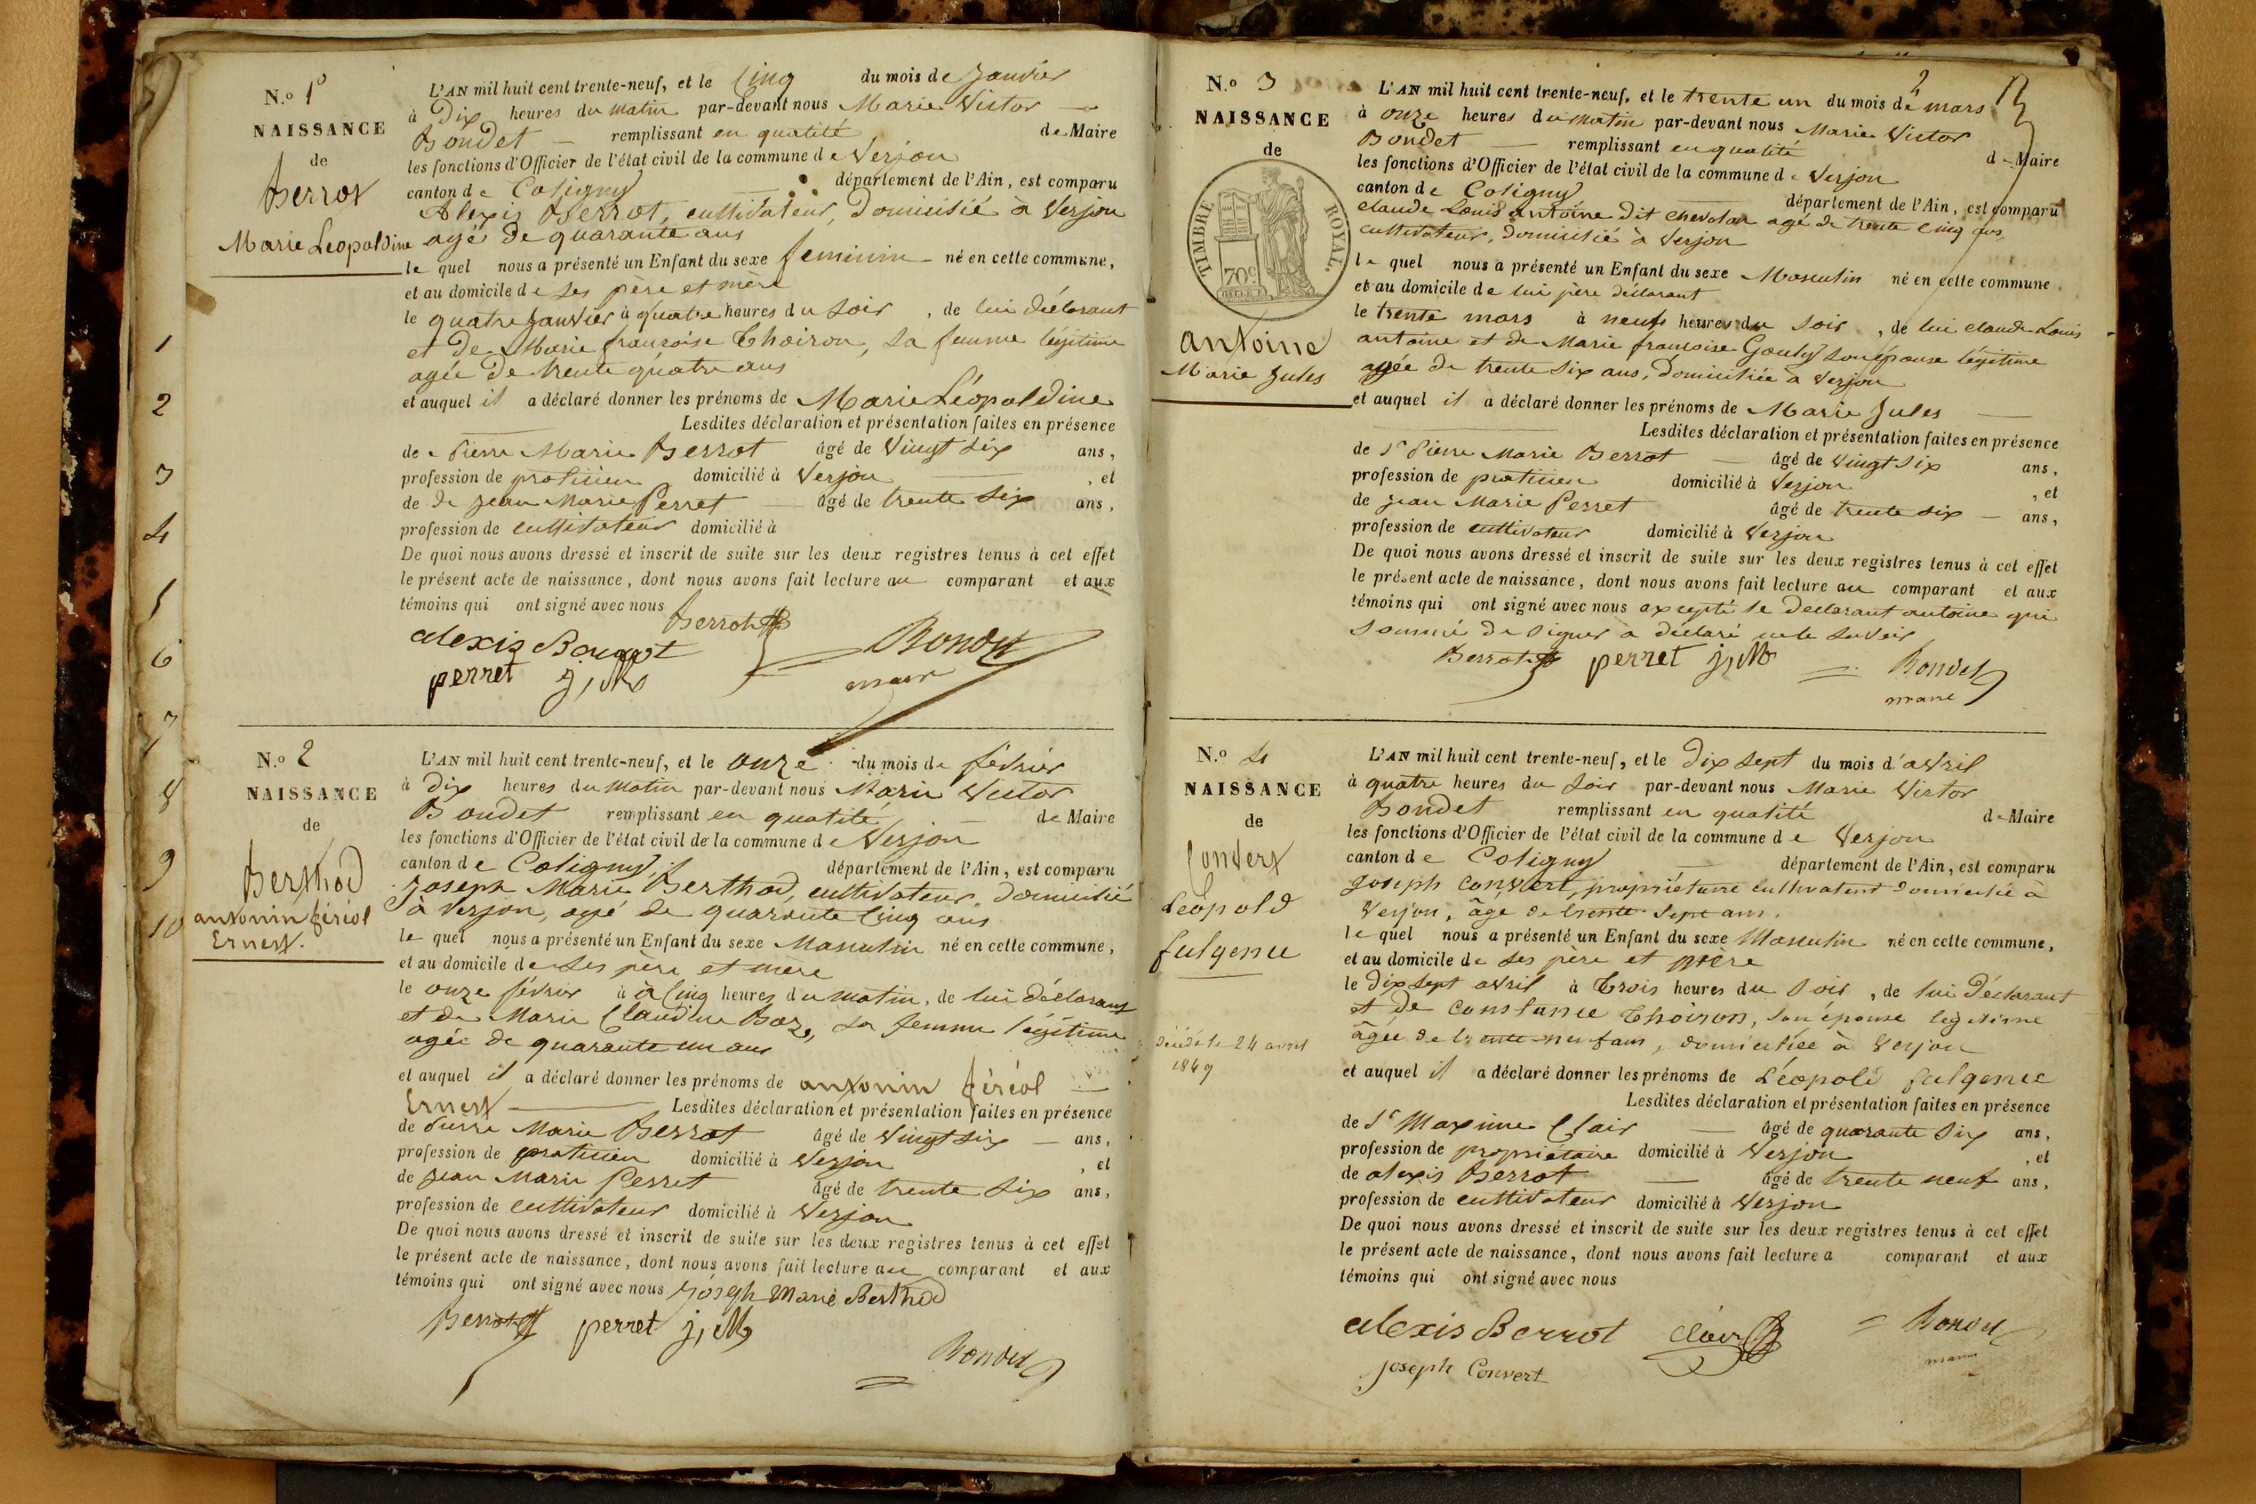 N.o 1o
NAISSANCE
de
Berrot
Marie Leopoldine
L'AN mil huit cent trente-neuf, et le Cinq du mois de Janvier
à Dix heures du matin par-devant nous Marie Victor
Bondet remplissant en qualité de Maire
les fonctions d'Officier de l'état civil de la commune de Verjon
canton de Coligny département de l'Ain, est comparu
Alexis Berrot, cultivateur, Domicilié à Verjon
agé de quarante ans
le quel nous a présenté un Enfant du sexe feminin né en cette commune,
et au domicile de ses père et mère
le quatre Janvier à quatre heures du soir, de lui déclarant
et de Marie françoise Thoiron, sa femme légitime
agée de trente quatre ans
et auquel il a déclaré donner les prénoms de Marie Léopoldine
Lesdites déclaration et présentation faites en présence
de Pierre Marie Berrot âgé de vingt six ans,
profession de praticien domicilié à Verjon, et
de de Jean Marie Perret âgé de trente six ans,
profession de cultivateur domicilié à
De quoi nous avons dressé et inscrit de suite sur les deux registres tenus à cet effet
le présent acte de naissance, dont nous avons fait lecture au comparant et aux
témoins qui ont signé avec nous
Berrot
alexis Berrot Bondet
perret j, M maire
1
2
3
4
5
6
7
8
9
10
N.o 2
NAISSANCE
de
Berthod
antonin féréol
Ernest.
L'AN mil huit cent trente-neuf, et le onze du mois de février
à dix heures du matin par-devant nous Marie Victor
Bondet remplissant en qualité de Maire
les fonctions d'Officier de l'état civil de la commune de Verjon
canton de Coligny département de l'Ain, est comparu
Joseph Marie Berthod, cultivateur, domicilié
à Verjon, agé de quarante cinq ans
le quel nous a présenté un Enfant du sexe Masculin né en cette commune,
et au domicile de ses père et mère
le onze février à à cinq heures du matin, de lui déclarant
et de Marie Claudine Boz, sa femme légitime
agée de quarante un ans
et auquel il a déclaré donner les prénoms de antonin féréol
Ernest Lesdites déclaration et présentation faites en présence
de Pierre Marie Berrot âgé de vingt six ans,
profession de praticien domicilié à Verjon, et
de Jean Marie Perret âgé de trente six ans,
profession de cultivateur domicilié à Verjon
De quoi nous avons dressé et inscrit de suite sur les deux registres tenus à cet effet
le présent acte de naissance, dont nous avons fait lecture au comparant et aux
témoins qui ont signé avec nous Joseph Marie Berthod
Berrot perret j, M
Bondet
N.o 3
NAISSANCE
de
TIMBRE ROYAL.
70c
antoine
Marie Jules
2
L'AN mil huit cent trente-neuf, et le trente un du mois de mars
à onze heures du matin par-devant nous Marie Victor
Bondet remplissant en qualité de Maire
les fonctions d'Officier de l'état civil de la commune de Verjon
canton de Coligny département de l'Ain, est comparu
claude Louis antoine dit chevolar agé de trente cinq ans,
cultivateur, domicilié à Verjon
le quel nous a présenté un Enfant du sexe Masculin né en cette commune
et au domicile de lui père déclarant
le trente mars à neuf heures du soir, de lui claude Louis
antoine et de Marie françoise Gouly son épouse légitime
agée de trente six ans, domiciliée à Verjon
et auquel il a déclaré donner les prénoms de Marie Jules
Lesdites déclaration et présentation faites en présence
de Sr Pierre Marie Berrot âgé de vingt six ans,
profession de praticien domicilié à Verjon, et
de jean Marie Perret âgé de trente six ans,
profession de cultivateur domicilié à Verjon
De quoi nous avons dressé et inscrit de suite sur les deux registres tenus à cet effet
le présent acte de naissance, dont nous avons fait lecture au comparant et aux
témoins qui ont signé avec nous excepté le déclarant antoine qui
sommé de signer a déclaré ne le savoir
Berrot perret j, M Bondet
maire
N.o 4
NAISSANCE
de
Convert
Léopold
fulgence
décédé le 24 avril
1849
L'AN mil huit cent trente-neuf, et le dix sept du mois d'avril
à quatre heures du soir par-devant nous Marie Victor
Bondet remplissant en qualité de Maire
les fonctions d'Officier de l'état civil de la commune de Verjon
canton de Coligny département de l'Ain, est comparu
Joseph Convert, propriétaire cultivateur domicilié à
Verjon, âgé de trente sept ans.
le quel nous a présenté un Enfant du sexe Masculin né en cette commune,
et au domicile de ses père et mère
le dix sept avril à trois heures du soir, de lui déclarant
et de Constance Thoiron, son épouse légitime
âgée de trente neuf ans, domiciliée à Verjon
et auquel il a déclaré donner les prénoms de Léopold fulgence
Lesdites déclaration et présentation faites en présence
de Sr Maxime Clair âgé de quarante six ans,
profession de propriétaire domicilié à Verjon, et
de alexis Berrot âgé de trente neuf ans,
profession de cultivateur domicilié à Verjon
De quoi nous avons dressé et inscrit de suite sur les deux registres tenus à cet effet
le présent acte de naissance, dont nous avons fait lecture a comparant et aux
témoins qui ont signé avec nous
alexis Berrot Clair Bondet
Joseph Convert maire